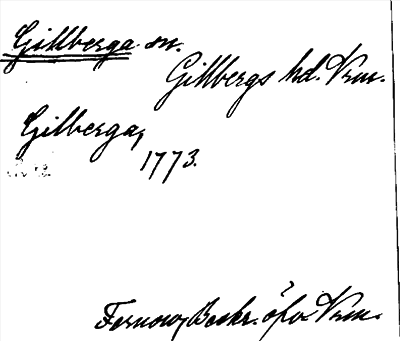 Gillberga sn.
Gillbergs hd. Vrm.
Gilberga,
1773.
Fernow, Beskr. öfv. Vrm.